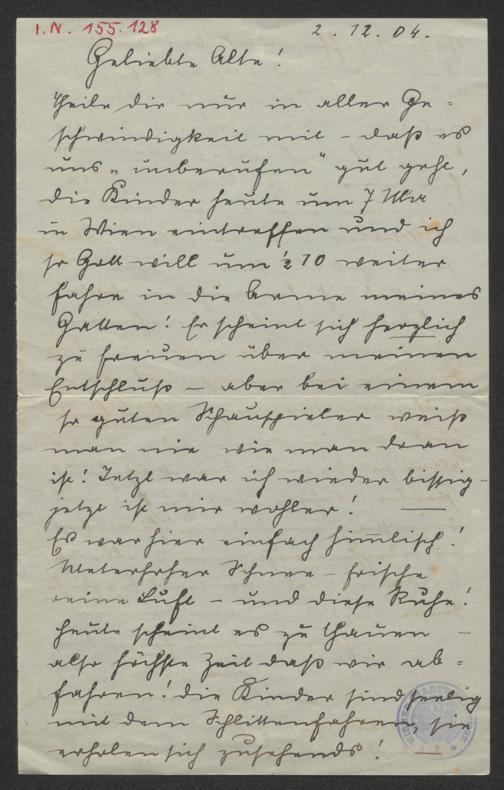 I.N. 155.128
2.12.04.
Geliebte Alte!
Theile dir nur in aller Ge=
schwindigkeit mit – daß es
uns „unberufen" gut geht,
die Kinder heute um 7 Uhr
in Wien eintreffen und ich
so Gott will um ½ 10 weiter
fahre in die Arme meines
Gatten! Er scheint sich herzlich
zu freuen über meinen
Entschluß – aber bei einem
so guten Schauspieler weiß
man nie wie man dran
ist! Jetzt war ich wieder bissig –
jetzt ist mir wohler! —
Es war hier einfach himmlisch!
Meterhoher Schnee – frische
reine Luft – und diese Ruhe!
Heute scheint es zu thauen –
also höchste Zeit daß wir ab=
fahren! Die Kinder sind seelig
mit dem Schlittenfahren, sie
erholen sich zusehends! —